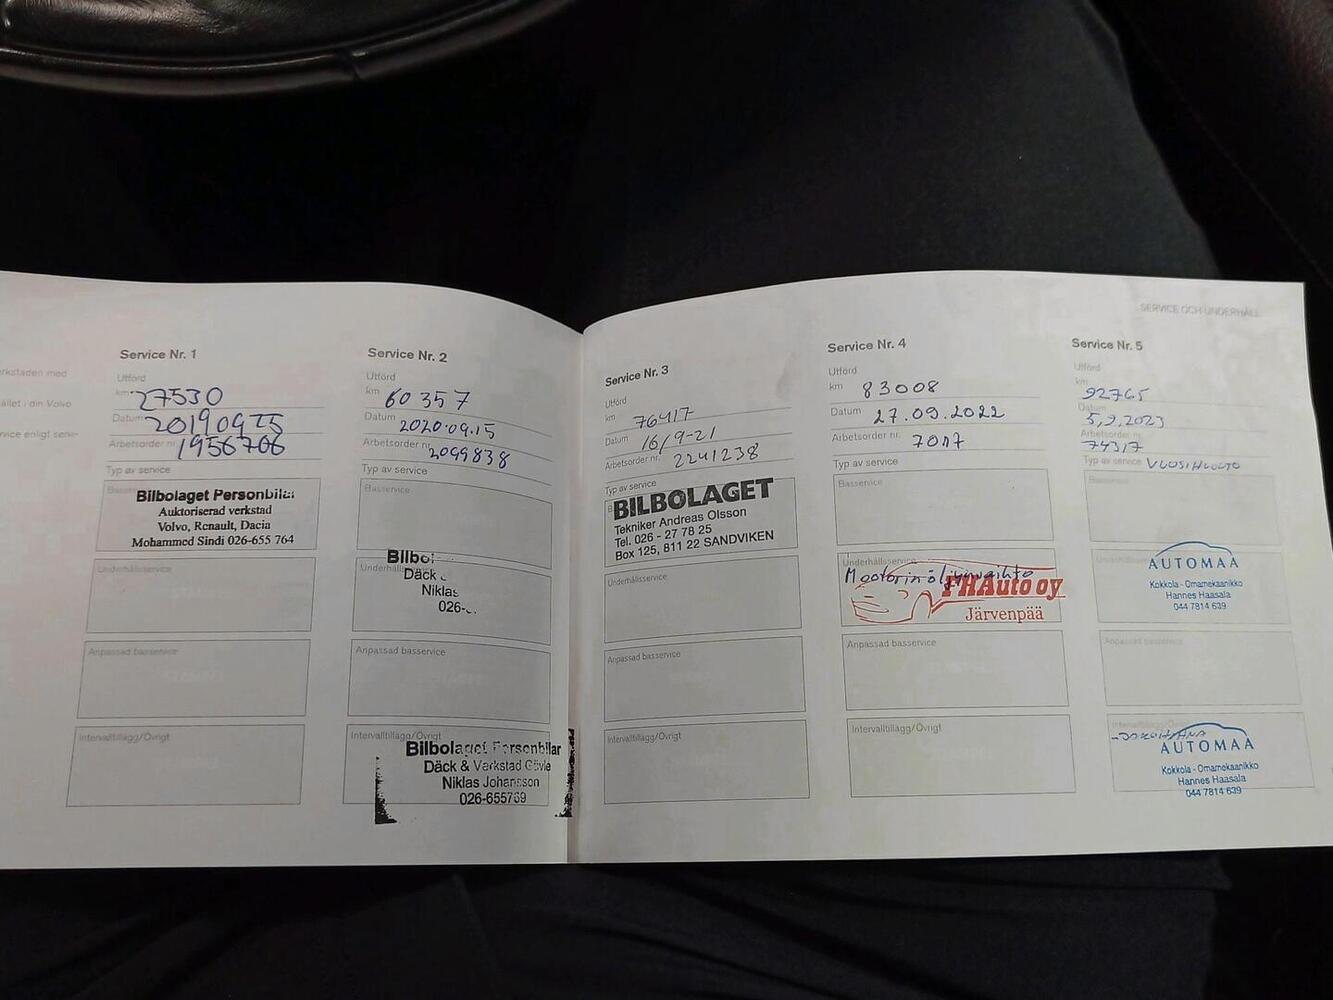 SERVICE OCH UNDERHÅLL
rkstaden med
ället i din Volvo
rvice enligt servi-
Service Nr. 1
Utförd
km 27530
Datum 20190925
Arbetsorder nr. 1956706
Typ av service
Bilbolaget Personbilar
Auktoriserad verkstad
Volvo, Renault, Dacia
Mohammed Sindi 026-655 764
Underhållsservice
Anpassad basservice
Intervalltillägg/Övrigt
Service Nr. 2
Utförd
km 60357
Datum 2020.09.15
Arbetsorder nr. 2099838
Typ av service
Basservice
Bilbol
Underhållsservice
Däck
Niklas
026-
Anpassad basservice
Intervalltillägg/Övrigt
Bilbolaget Personbilar
Däck & Verkstad Gävle
Niklas Johansson
026-655769
Service Nr. 3
Utförd
km 76417
Datum 16/9-21
Arbetsorder nr. 2241238
Typ av service
BILBOLAGET
Tekniker Andreas Olsson
Tel. 026 - 27 78 25
Box 125, 811 22 SANDVIKEN
Underhållsservice
Anpassad basservice
Intervalltillägg/Övrigt
Service Nr. 4
Utförd
km 83008
Datum 27.09.2022
Arbetsorder nr. 7017
Typ av service
Basservice
Underhållsservice
Moottoriöljynvaihto
FHAuto oy
Järvenpää
Anpassad basservice
Intervalltillägg/Övrigt
Service Nr. 5
Utförd
km 92765
Datum 5.9.2023
Arbetsorder nr. 74317
Typ av service VUOSIHUOLTO
Basservice
Underhållsservice
AUTOMAA
Kokkola - Omamekaanikko
Hannes Haasala
044 7814 639
Anpassad basservice
Intervalltillägg/Övrigt
AUTOMAA
Kokkola - Omamekaanikko
Hannes Haasala
044 7814 639